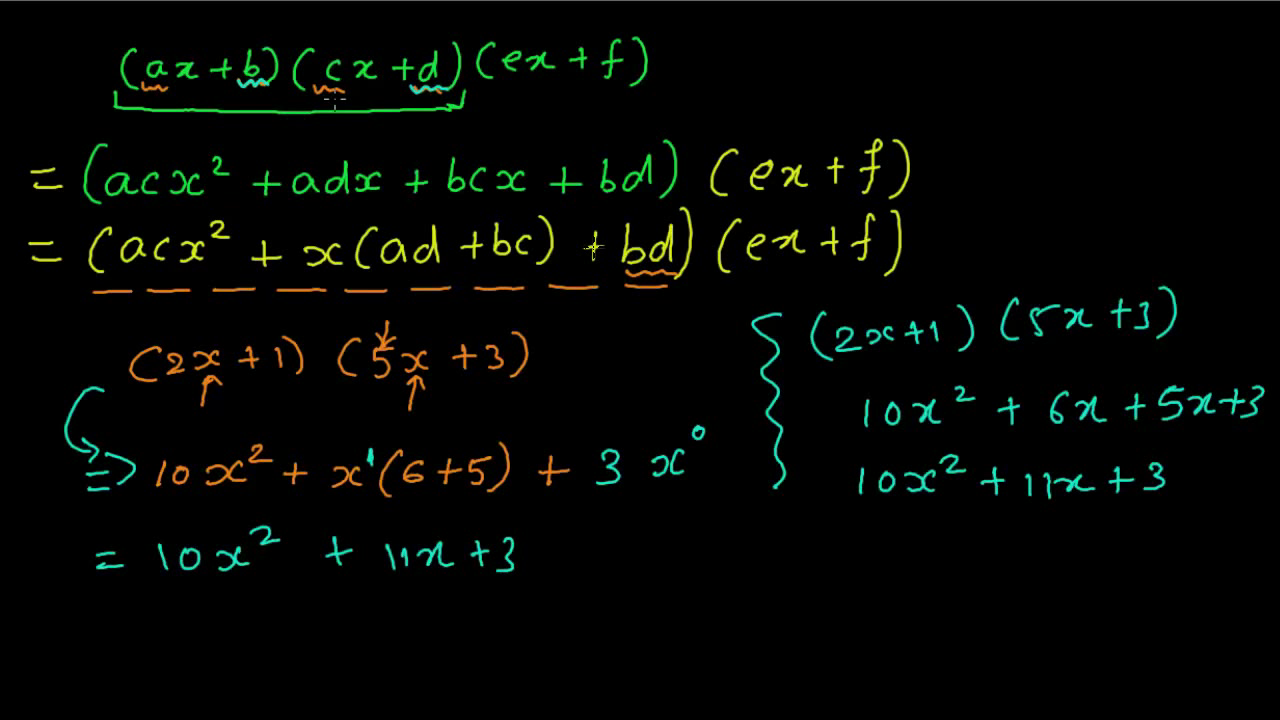 (ax+b)(cx+d)(ex+f)
=(acx²+adx+bcx+bd)(ex+f)
=(acx²+x(ad+bc)+bd)(ex+f)
(2x+1)(5x+3)
=>10x²+x¹(6+5)+3x⁰
=10x²+11x+3
(2x+1)(5x+3)
10x²+6x+5x+3
10x²+11x+3